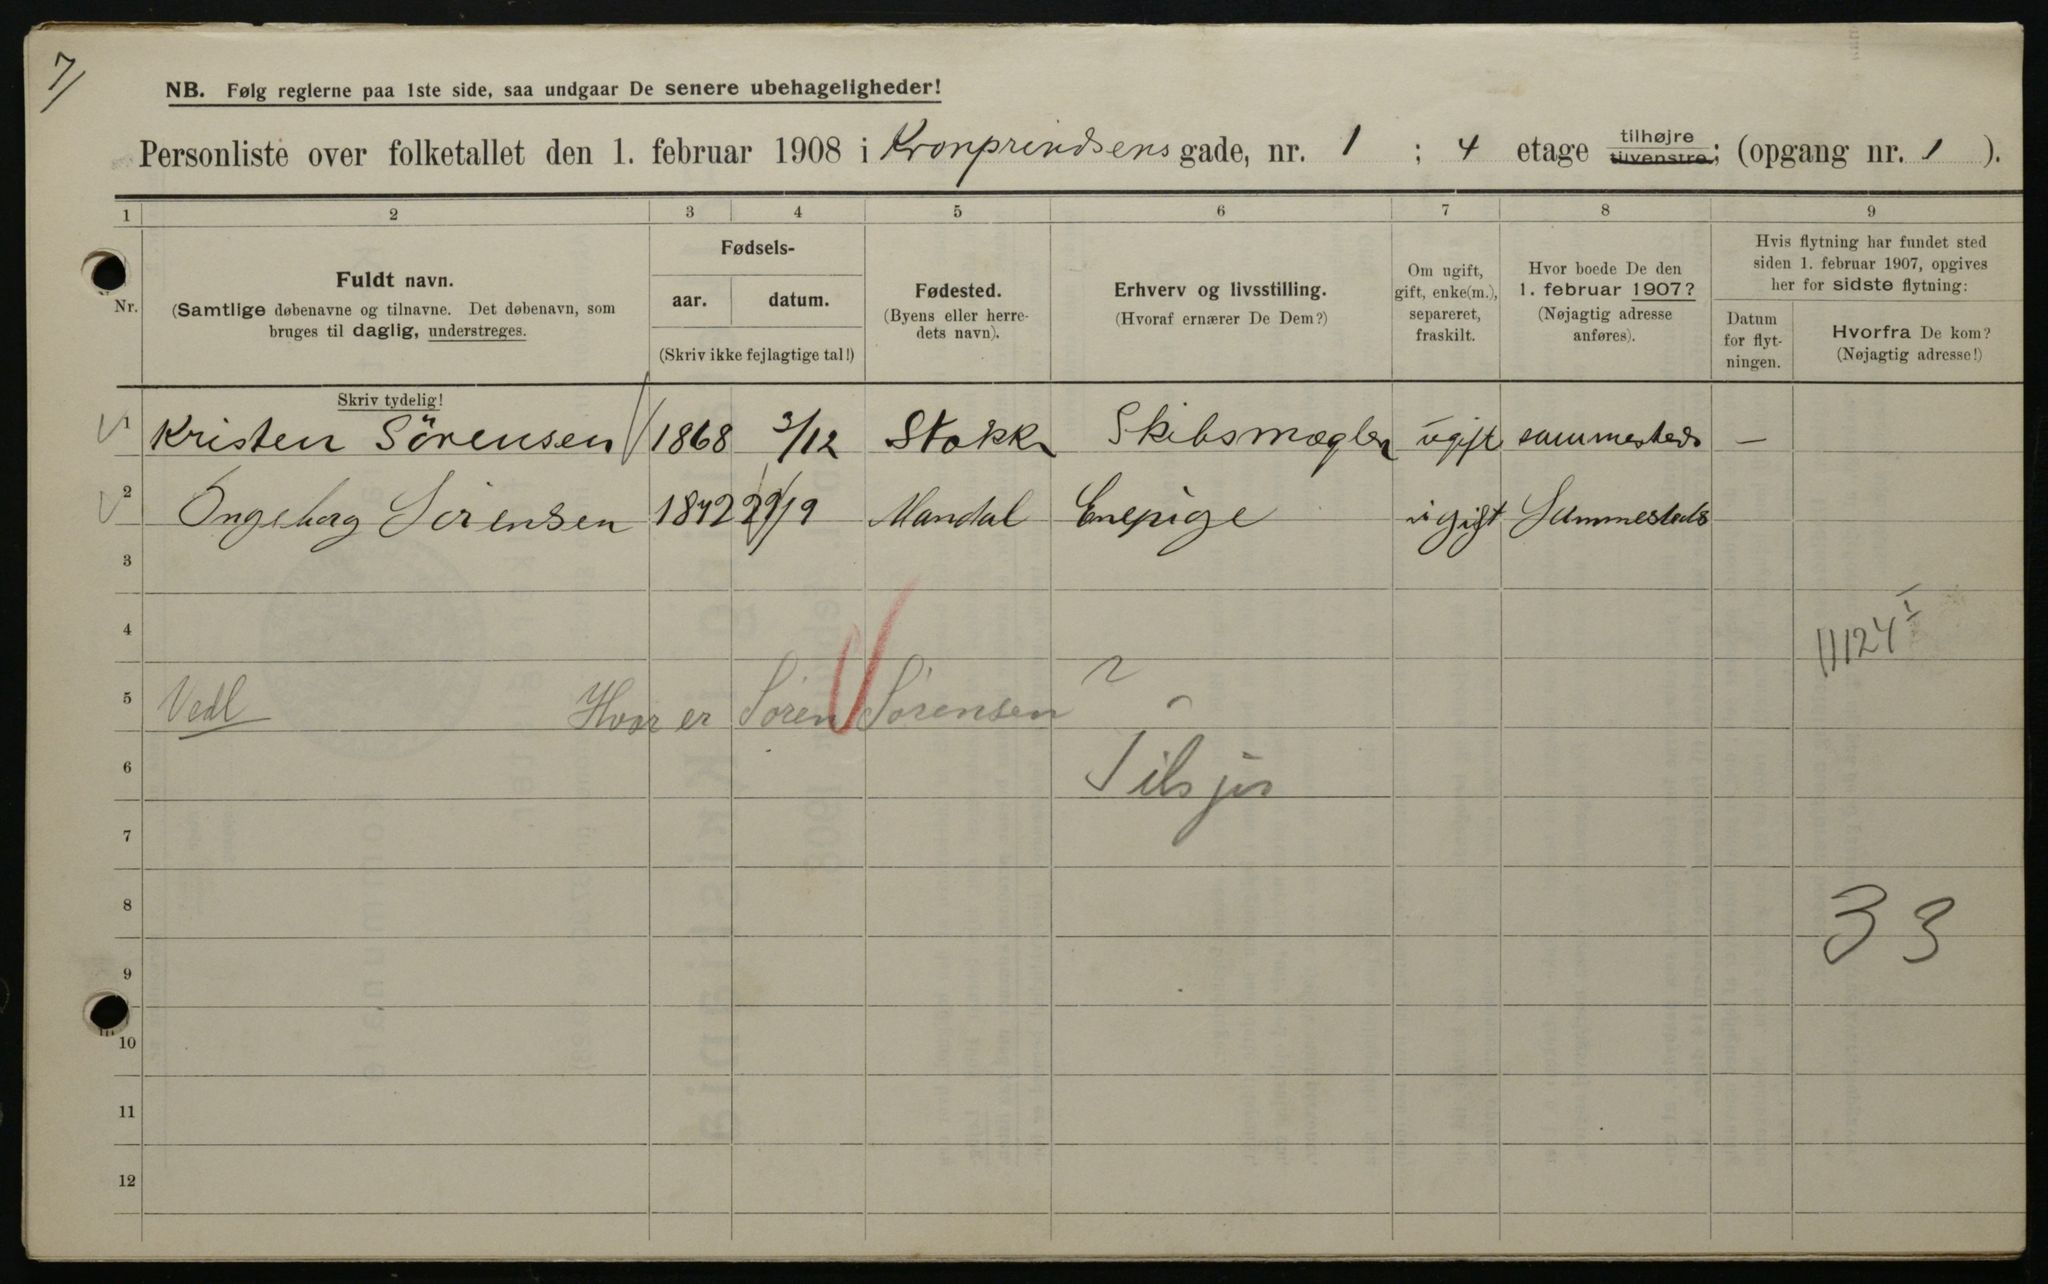 7/
NB. Følg reglerne paa 1ste side, saa undgaar De senere ubehageligheder!
Personliste over folketallet den 1. februar 1908 i Kronprindsens gade, nr. 1 ; 4 etage tilhøjre tilvenstre; (opgang nr. 1 ).
1 2 3 4 5 6 7 8 9
Nr.
Fuldt navn.
(Samtlige døbenavne og tilnavne. Det døbenavn, som
bruges til daglig, understreges.
Fødsels-
aar. datum.
(Skriv ikke fejlagtige tal!)
Fødested.
(Byens eller herre-
dets navn).
Erhverv og livsstilling.
(Hvoraf ernærer De Dem?)
Om ugift,
gift, enke(m.),
separeret,
fraskilt.
Hvor boede De den
1. februar 1907?
(Nøjagtig adresse
anføres).
Hvis flytning har fundet sted
siden 1. februar 1907, opgives
her for sidste flytning:
Datum
for flyt-
ningen.
Hvorfra De kom?
(Nøjagtig adresse!)
Skriv tydelig!
1 Kristen Sörensen 1868 3/12 Stokke Skibsmægler ugift sammesteds —
2 Ingeborg Sørensen 1872 29/9 Mandal Enepige ugift Sammesteds
3
4 11124
5 Vedl Hvor er Søren Sørensen ?
6 Tilsjøs
7
8 33
9
10
11
12